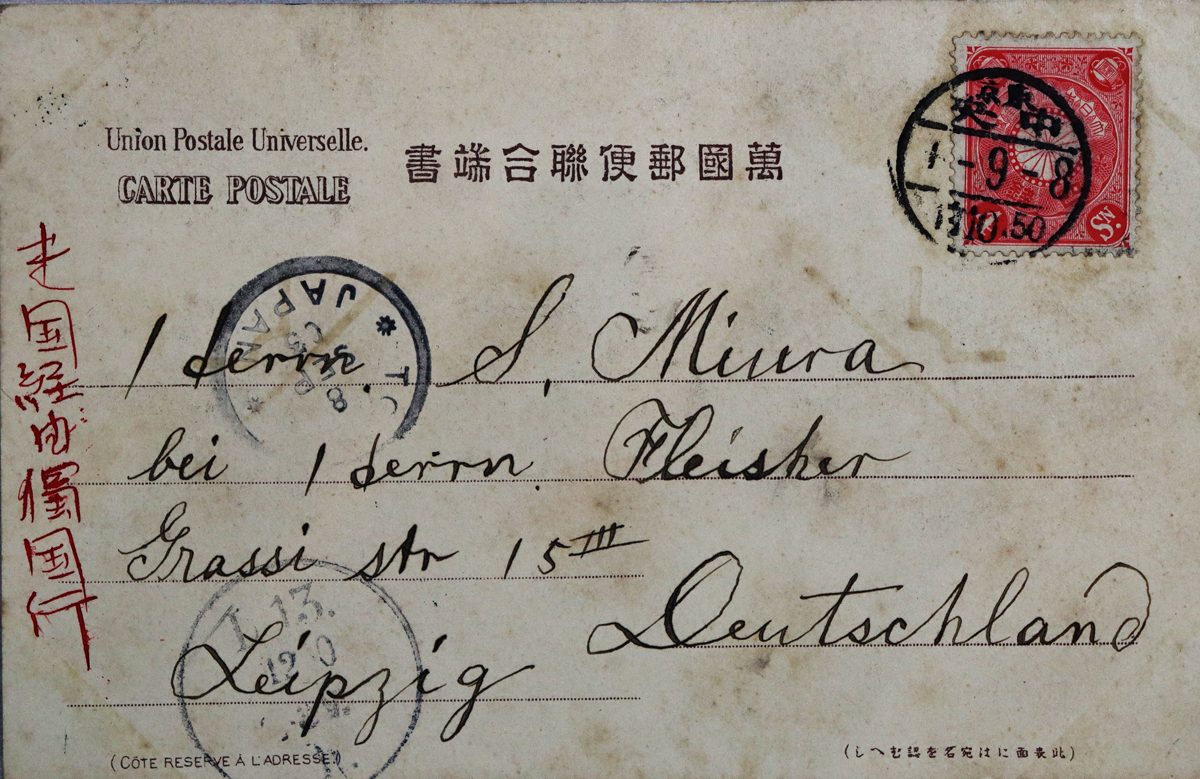 Union Postale Universelle.
CARTE POSTALE
書端合聯便郵國萬
東京
中
-9-8
10.50
JAPAN
8
SEP
Herrn. S. Miura
bei Herrn. Fleisher
Grassi str 15 III
Leipzig
Deutschland
米国経由獨国行
13.
(CÔTE RESERVE À L'ADRESSE.)
(しへむ認を名宛はに面表此)